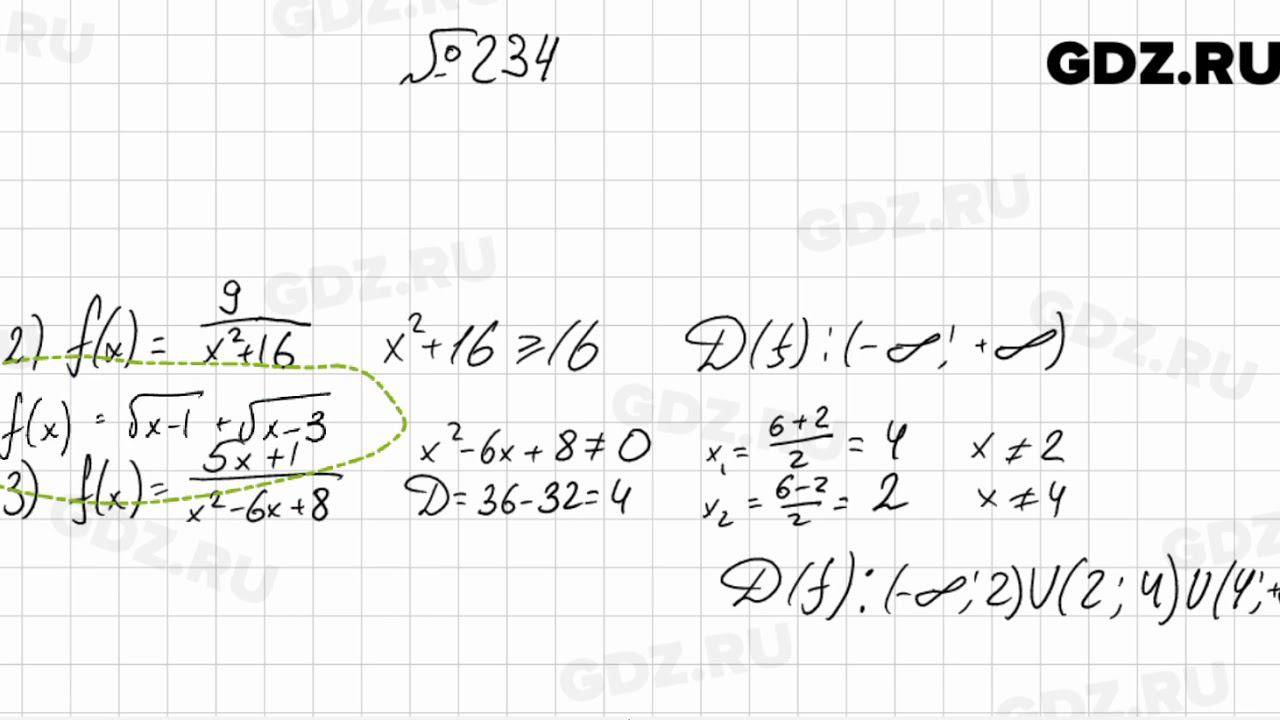 № 234
GDZ.RU
2) f(x) = 9/(x²+16) x²+16 ⩾ 16 D(f): (-∞; +∞)
f(x) = √(x-1) + √(x-3)
3) f(x) = (5x+1)/(x²-6x+8) x²-6x+8 ≠ 0 x₁ = (6+2)/2 = 4 x ≠ 2
D = 36-32 = 4 x₂ = (6-2)/2 = 2 x ≠ 4
D(f): (-∞; 2)U(2; 4)U(4; +